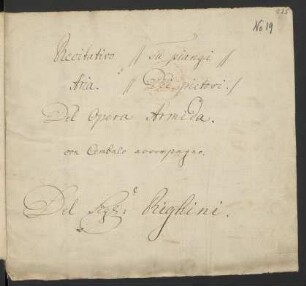 No 19
Recitativo // tu piangi //
Aria. //
Del Opera Armida.
con Cembalo accompagno.
Del Sigr. Righini.